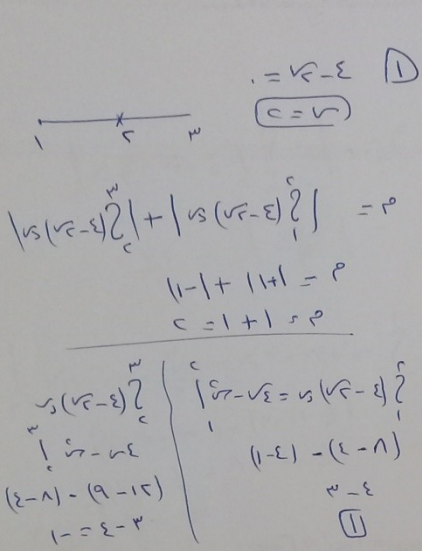 ① ٤ − ٢س = ٠
س = ٢
١ ٢ ٣
م = |∫₁^٢ (٤ − ٢س) ءس| + |∫₂^٣ (٤ − ٢س) ءس|
م = |١| + |−١|
م = ١ + ١ = ٢
∫₁^٢ (٤ − ٢س) ءس = ٤س − س² |₁^٢
(٨ − ٤) − (٤ − ١)
٤ − ٣
١
∫₂^٣ (٤ − ٢س) ءس
٤س − س² |₂^٣
(١٢ − ٩) − (٨ − ٤)
٣ − ٤ = −١